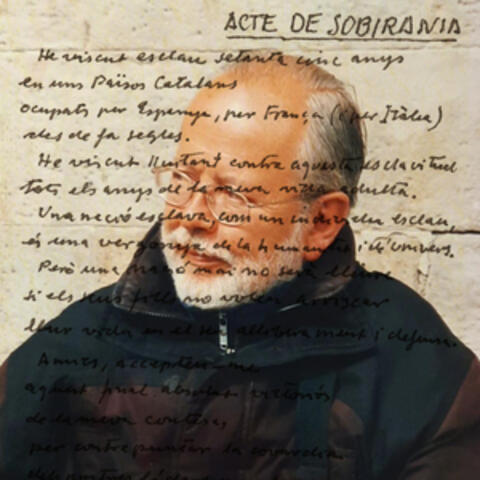 ACTE DE SOBIRANIA
He viscut esclau setanta cinc anys
en uns Països Catalans
ocupats per Espanya, per França (i per Itàlia)
des de fa segles.
He viscut lluitant contra aquesta esclavitud
tots els anys de la meva vida adulta.
Una nació esclava, com un individu esclau,
és una vergonya de la humanitat i de l'univers.
Però una nació mai no serà lliure
si els seus fills no volen arriscar
llur vida en el seu alliberament i defensa.
Amics, accepteu-me
aquest final absolut victoriós
de la meva contesa,
per contrapuntar la covardia